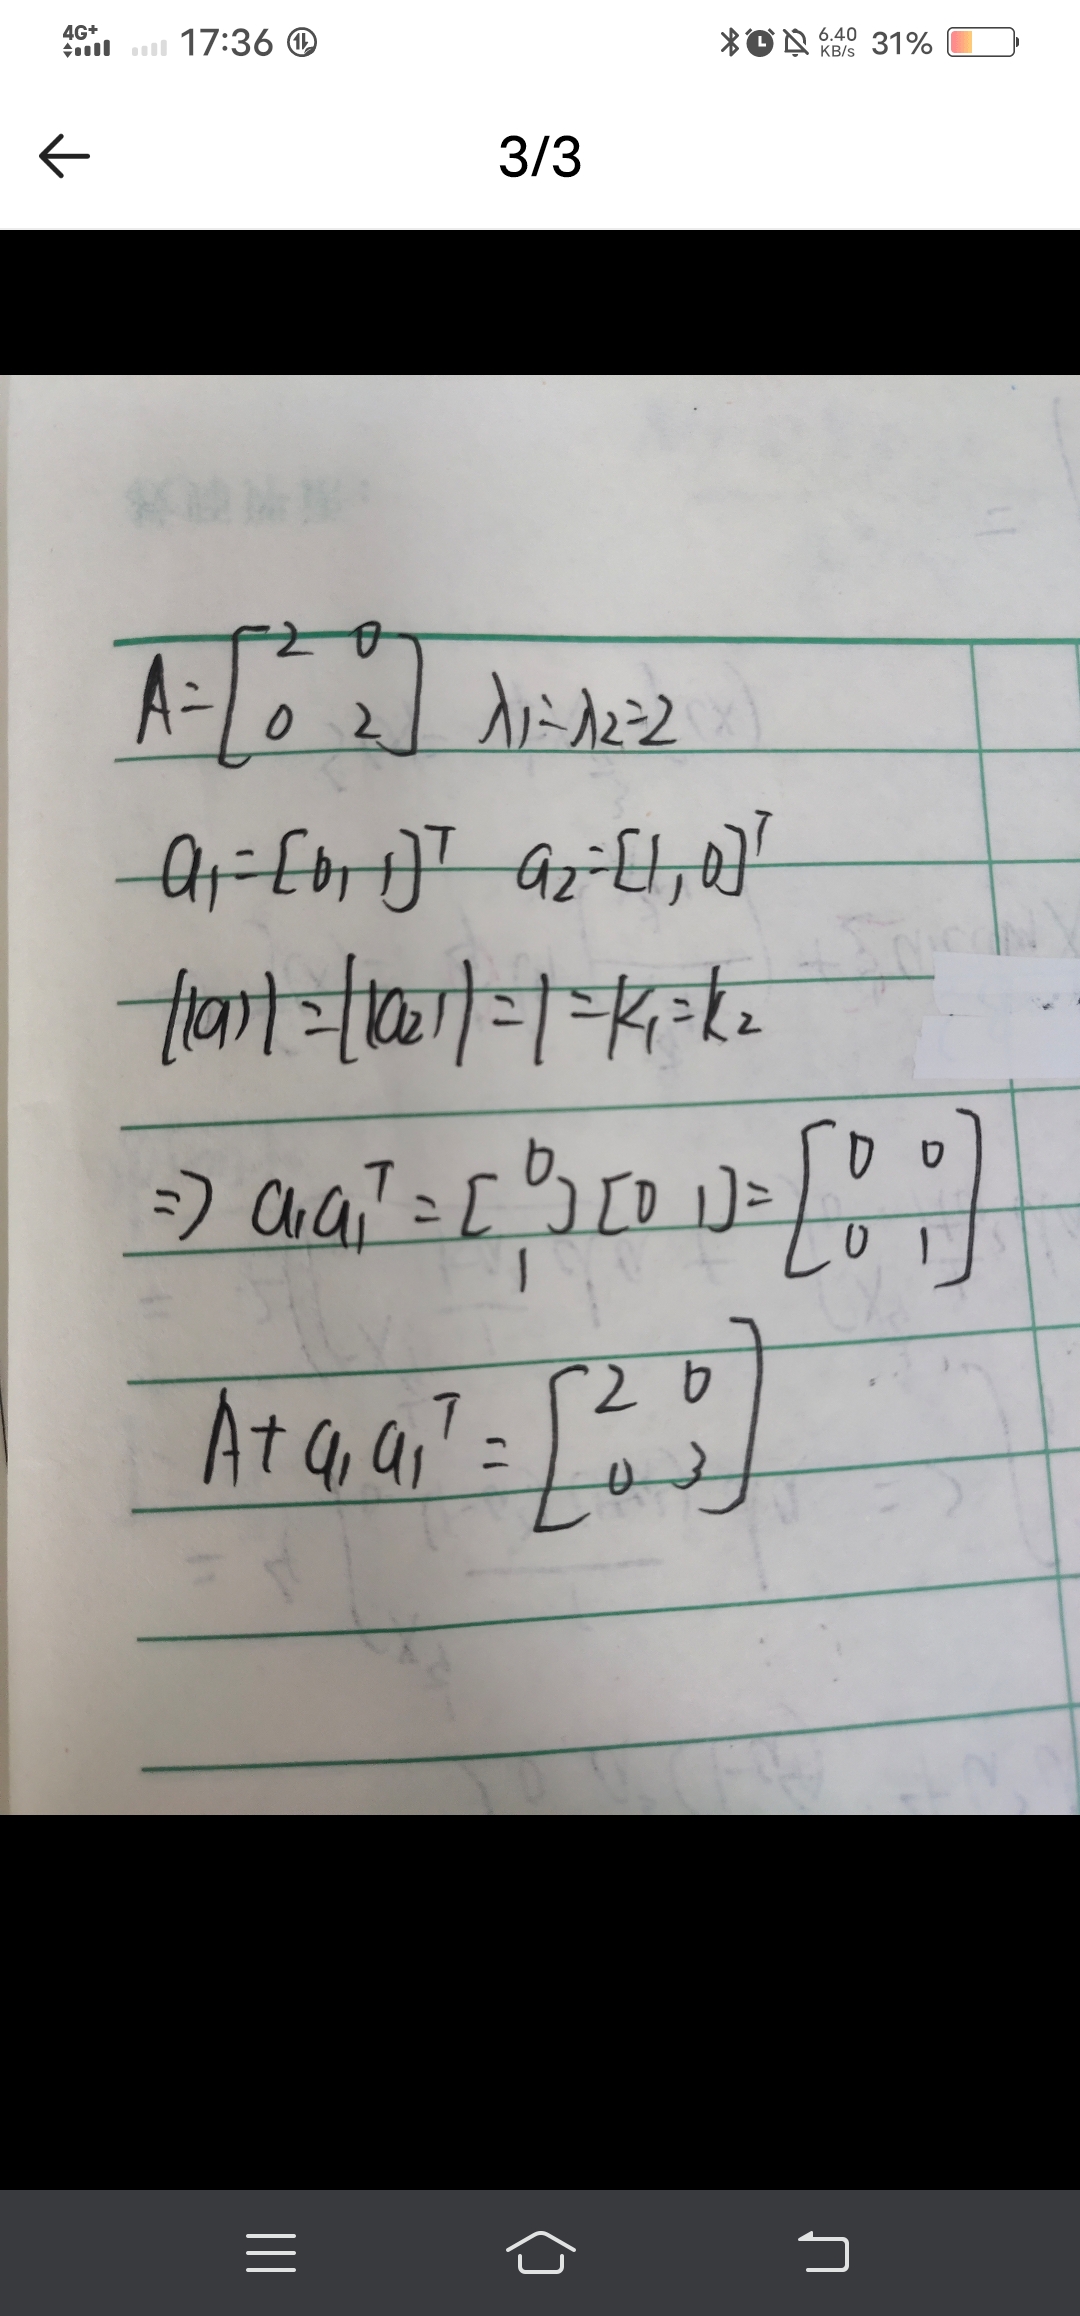 4G+ 17:36 6.40 KB/s 31%
3/3
A=[2 0
0 2] λ1=λ2=2
a1=[0,1]ᵀ a2=[1,0]ᵀ
||a1||=||a2||=1=k1=k2
=> a1a1ᵀ=[0
1][0 1]=[0 0
0 1]
A+a1a1ᵀ=[2 0
0 3]